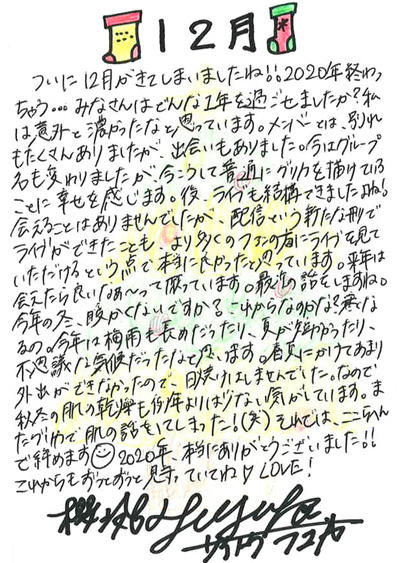 12月
ついに12月がきてしまいましたね!!2020年終わっ
ちゃう…みなさんはどんな1年を過ごせましたか?私
は意外と濃かったなと思っています。メンバーとは、別れ
もたくさんありましたが、出会いもありました。今はグループ
名も変わりましたが、今こうして普通にグリカを描けている
ことに幸せを感じます。後、ライブも結構できましたよね!
会えることはありませんでしたが、配信という新たな形で
ライブができたことも、より多くのファンの方にライブを見て
いただけるという点で本当に良かったと思っています。来年は
会えたら良いなぁ〜って願っています。最近の話をしますね。
今年の冬、暖かくないですか?これからなのかな?寒くな
るの。今年は梅雨も長めだったり、夏が短かったり、
不思議な気候だったなと思います。春夏にかけてあまり
外出ができなかったので、日焼けはしませんでした。なので
秋冬の肌の乾燥も例年よりは少ない気がしています。ま
たグリカで肌の話をしてしまった!(笑)それでは、ここらへん
で締めます 2020年、本当にありがとうございました!!
これからもずっとずっと見守っていてね♡LOVE!